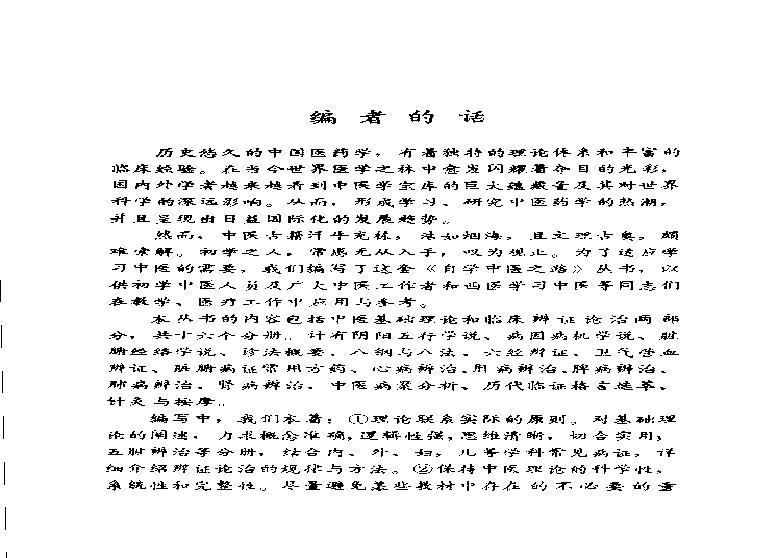 编者的话
历史悠久的中国医药学，有着独特的理论体系和丰富的
临床经验。在当今世界医学之林中愈发闪耀着夺目的光彩，
国内外学者越来越看到中医学宝库的巨大蕴藏量及其对世界
科学的深远影响。从而，形成学习、研究中医药学的热潮，
并且呈现出日益国际化的发展趋势。
然而，中医古籍汗牛充栋，浩如烟海，且文理古奥，颇
难索解。初学之人，常感无从入手，叹为观止。为了适应学
习中医的需要，我们编写了这套《自学中医之路》丛书，以
供初学中医人员及广大中医工作者和西医学习中医等同志们
在教学、医疗工作中应用与参考。
本丛书的内容包括中医基础理论和临床辨证论治两部
分，共十六个分册。计有阴阳五行学说、病因病机学说、脏
腑经络学说、诊法概要、八纲与八法、六经辨证、卫气营血
辨证、脏腑病证常用方药、心病辨治、肝病辨治、脾病辨治、
肺病辨治、肾病辨治、中医病案分析、历代临证格言选萃、
针灸与按摩。
编写中，我们本着：①理论联系实际的原则。对基础理
论的阐述，力求概念准确，逻辑性强，思维清晰，切合实用；
五脏辨治等分册，结合内、外、妇、儿等学科常见病证，详
细介绍辨证论治的规律与方法。②保持中医理论的科学性，
系统性和完整性。尽量避免某些教材中存在的不必要的重